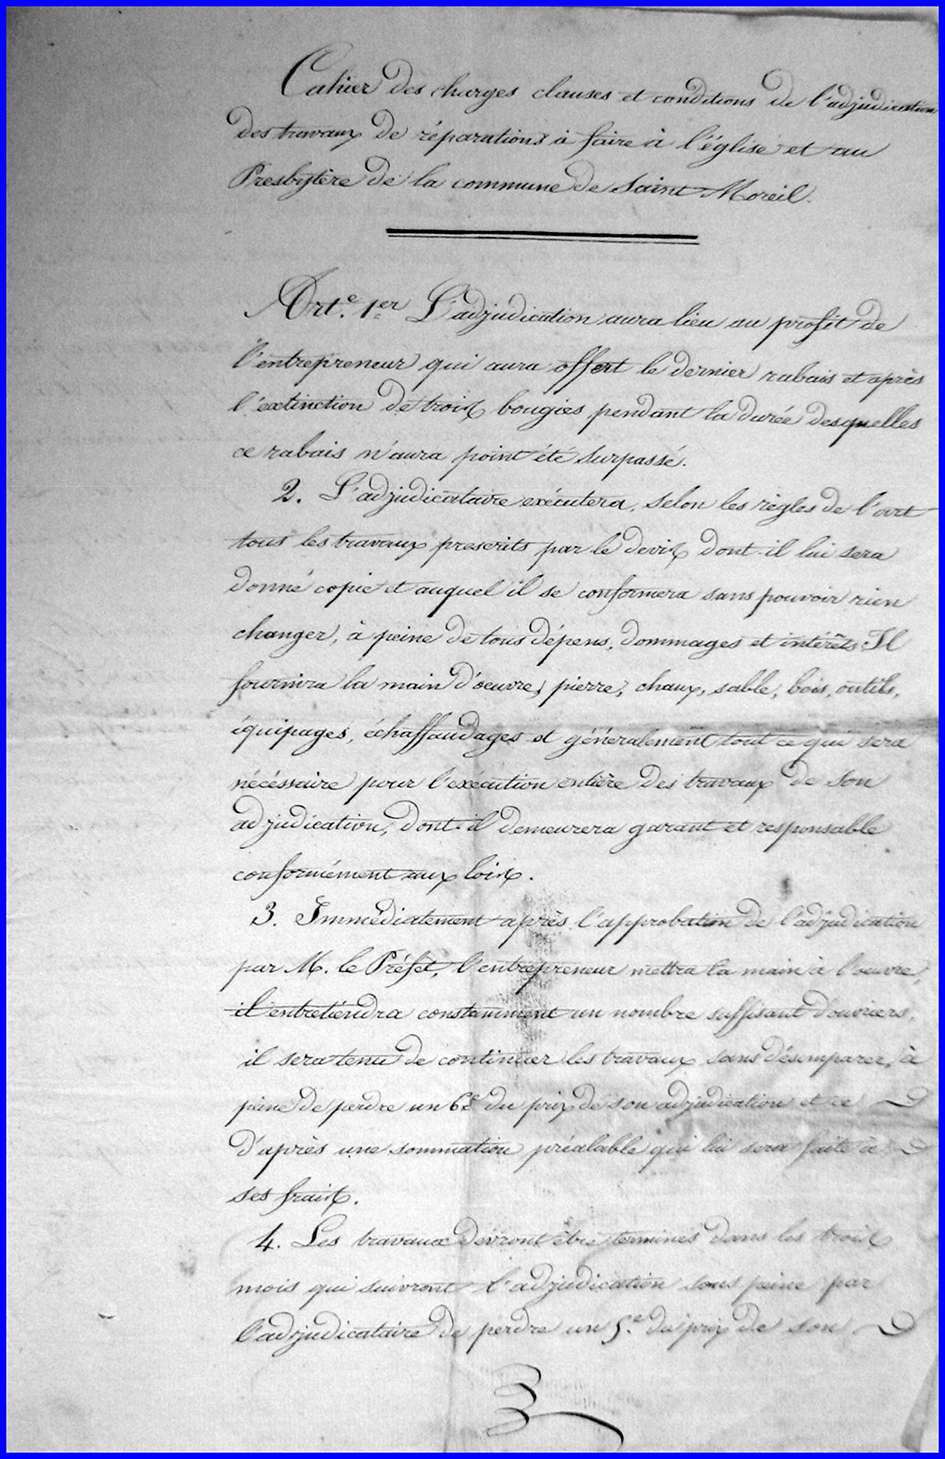 Cahier des charges clauses et conditions de l'adjudication
des travaux de réparations à faire à l'église et au
Presbytère de la commune de Saint Moreil.
Art.e 1er L'adjudication aura lieu au profit de
l'entrepreneur qui aura offert le dernier rabais et après
l'extinction de trois bougies pendant la durée desquelles
ce rabais n'aura point été surpassé.
2. L'adjudicataire exécutera, selon les règles de l'art
tous les travaux prescrits par le devis dont il lui sera
donné copie et auquel il se conformera sans pouvoir rien
changer, à peine de tous dépens, dommages et intérêts. Il
fournira la main d'oeuvre, pierre, chaux, sable, bois, outils,
équipages, échaffaudages et généralement tout ce qui sera
nécéssaire pour l'exécution entière des travaux de son
adjudication, dont il demeurera garant et responsable
conformément aux loix.
3. Immédiatement après l'approbation de l'adjudication
par M. le Préfet, l'entrepreneur mettra la main à l'oeuvre,
il entretiendra constamment un nombre suffisant d'ouvriers,
il sera tenu de continuer les travaux sans désemparer, à
peine de perdre un 6e du prix de son adjudication et ce
d'après une sommation préalable qui lui sera faite à
ses frais.
4. Les travaux devront être terminés dans les trois
mois qui suivront l'adjudication sous peine par
l'adjudicataire de perdre un 5.e du prix de son